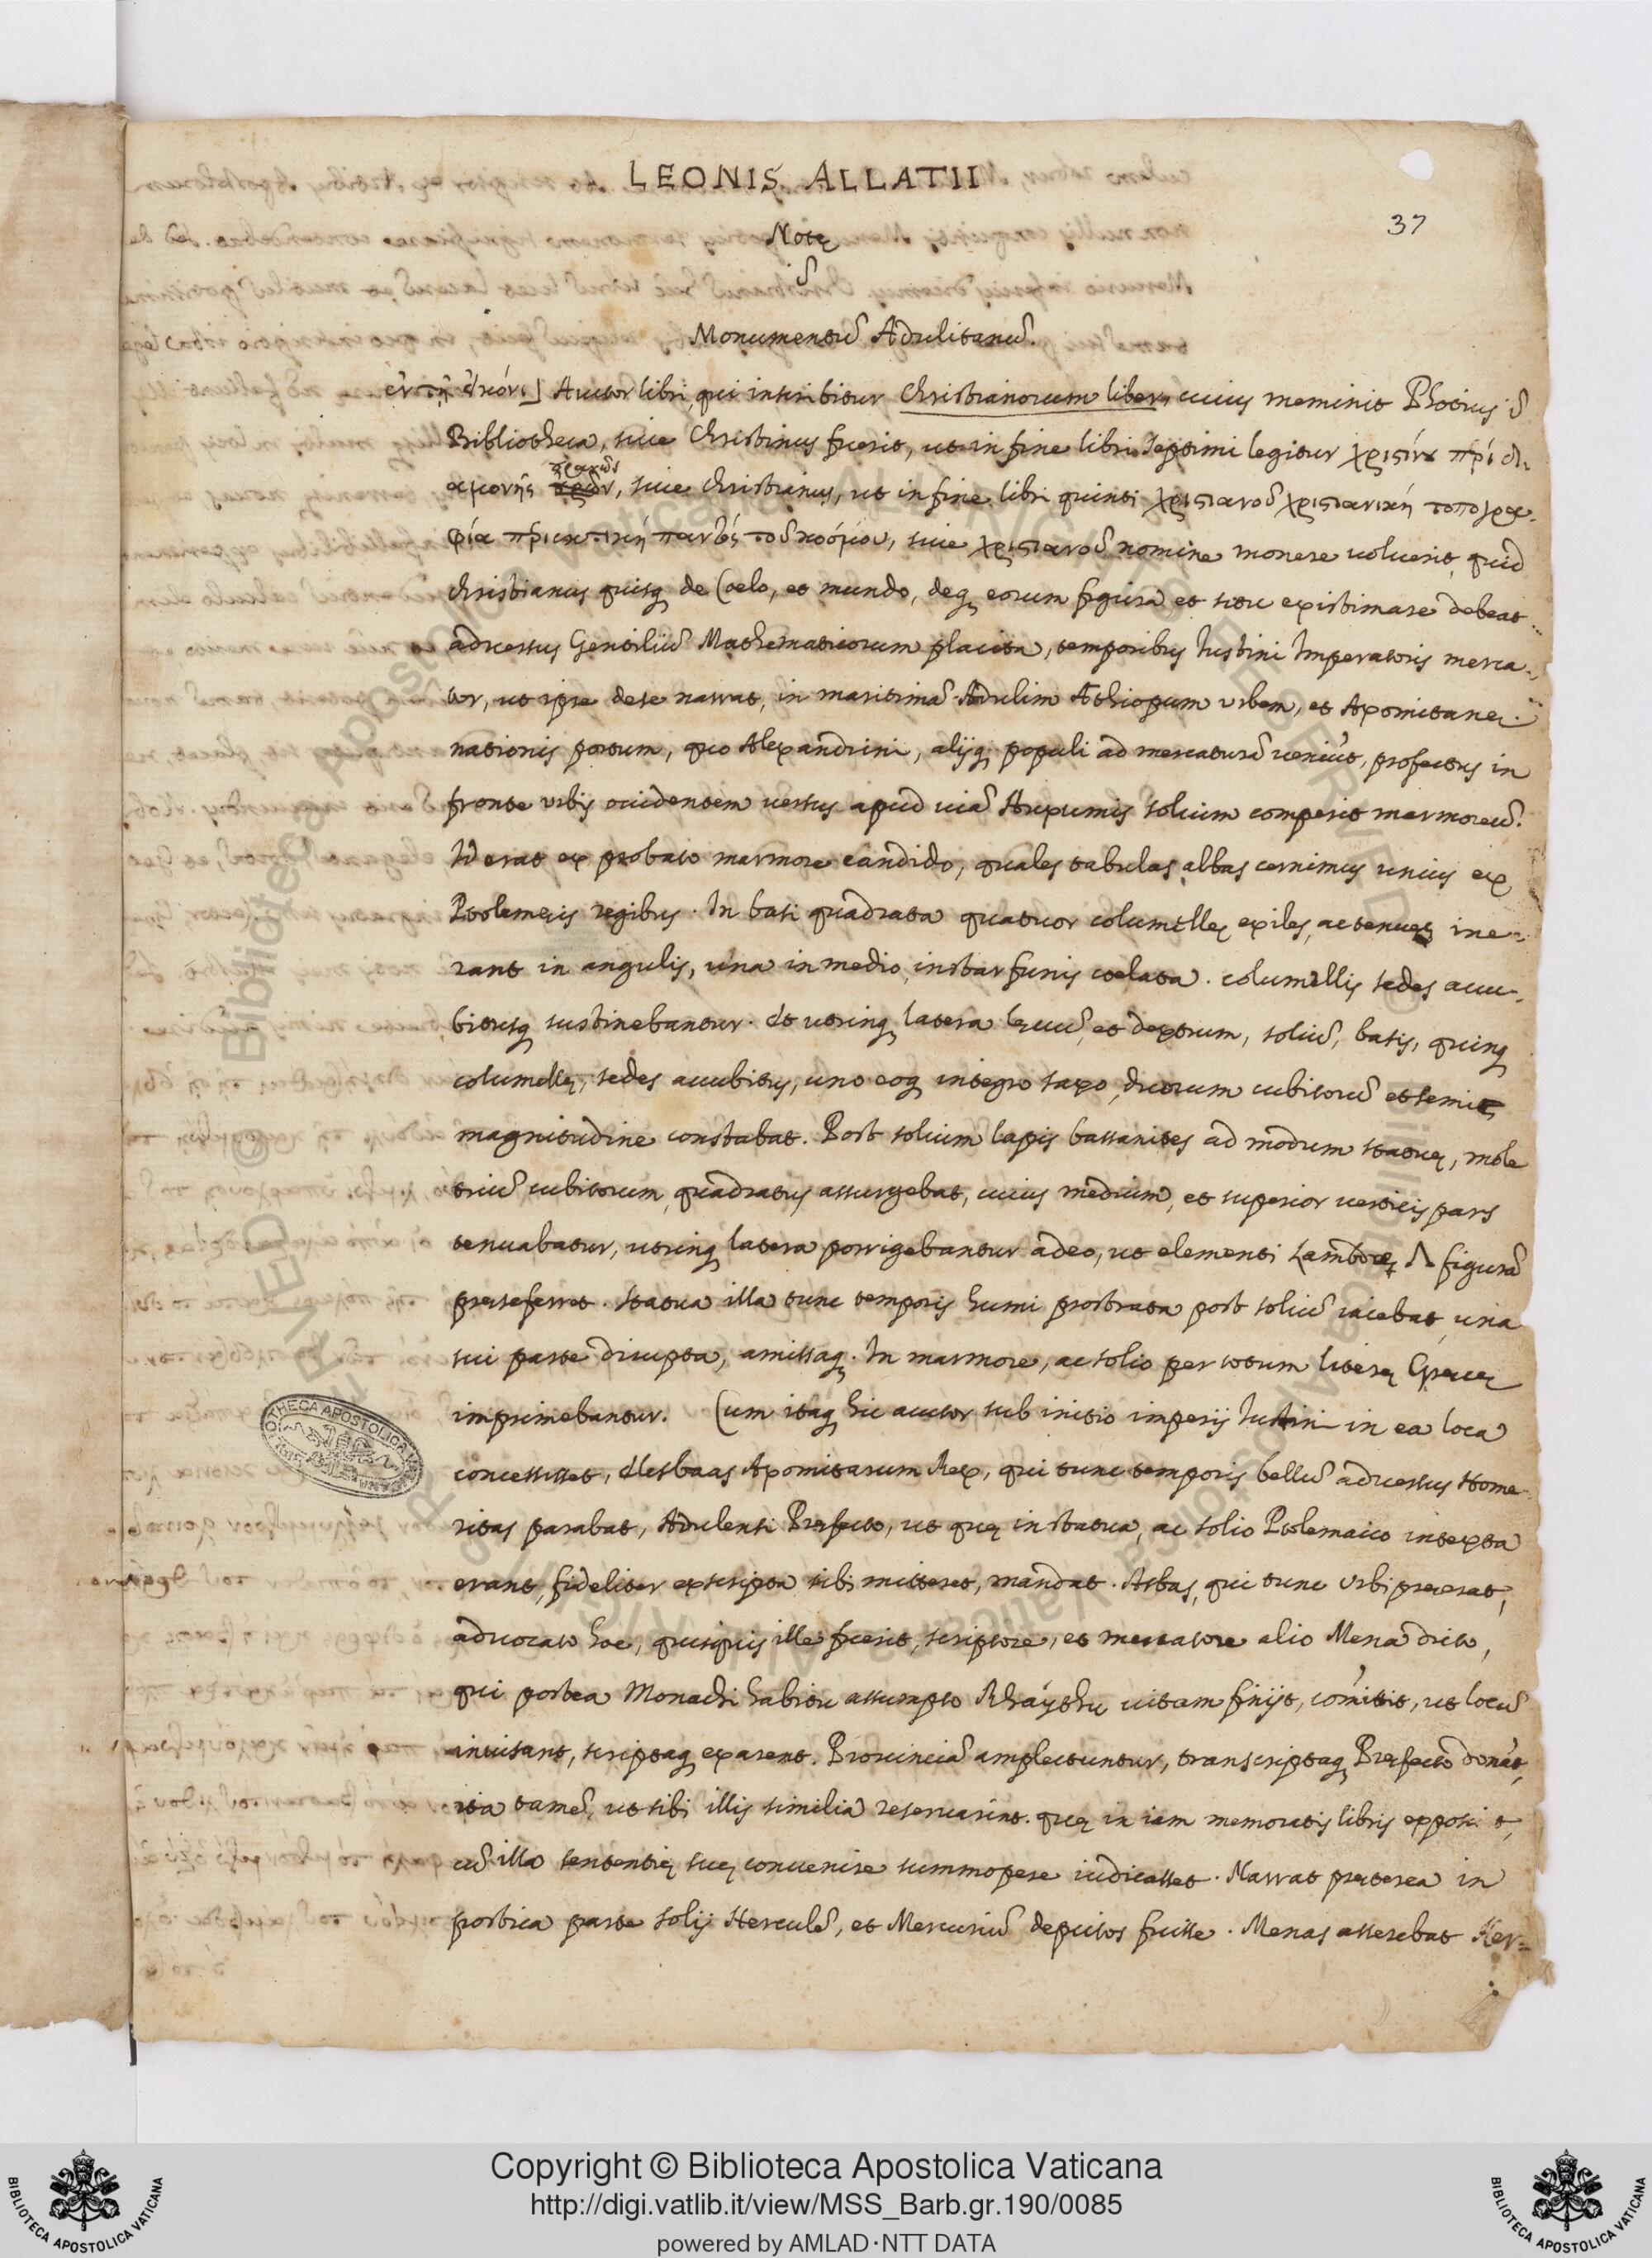 LEONIS ALLATII
37
Notę
ĩ
Monumentũ Adulitanũ.
ἐν τῇ εἰκόνι] Auctor libri, qui inscribitur Christianorum liber, cuius meminit Photius ĩ
Bibliotheca, siue Christinus fuerit, ut in fine libri septimi legitur
αμονῆς, siue Christianus, ut in fine libri quinti χριστιανοῦ χριστιανικὴ τοπογρα-
φία περιεκτικὴ παντὸς τοῦ κόσμου, siue χριστιανοῦ nomine monere uoluerit, quid
Christianus quisq de Coelo, et mundo, deq eorum figura et situ existimare debeat
aduersus Gentiliũ Mathematicorum placita, temporibus Iustini Imperatoris merca-
tor, ut ipse de se narrat, in maritimã Adulim Æthiopum urbem, et Axomitanę
nationis portum, quo Alexandrini, alijq populi ad mercaturã ueniũt, profectus in
fronte urbis occidentem uersus apud uiã Auxumis solium comperit marmoreũ.
Id erat ex probato marmore candido, quales tabulas albas cernimus unius ex
Ptolemęis regibus. In basi quadrata quatuor columellę exiles, ac tenues ine-
rant in angulis, una in medio, instar funis coelata. columellis sedes accu-
bitusq sustinebantur. Et utrinq latera lęuũ, et dextrum, soliũ, basis, quinq
columellę, sedes accubitus, uno eoq integro saxo, duorum cubitorũ et semis
magnitudine constabat. Post solium lapis bassanites ad modum statuę, mole
triũ cubitorum, quadratus assurgebat, cuius medium, et superior uerticis pars
tenuabatur, utrinq latera porrigebantur adeo, ut elementi Lambdę Λ figurã
pręseferret. Statua illa tunc temporis humi prostrata post soliũ iacebat, una
sui parte dirupta, amissaq. In marmore, ac solio per totum literę Gręcę
imprimebantur. Cum itaq hic auctor sub initio imperij Iustini in ea loca
concessisset, Elesbaas Axomitarum Rex, qui tunc temporis bellũ aduersus Home-
ritas parabat, Adulensi Pręfecto, ut quę in statua, ac solio Ptolemaico intexta
erant, fideliter exscripta sibi mitteret, mandat. Asbas, qui tunc Urbi pręerat,
aduocato hoc, quisquis ille fuerit, scriptore, et mercatore alio Mena dicto,
qui postea Monachi habitu assumpto Rhaythu uitam finijt, cõmisit, ut locũ
inuisant, scriptaq exarent. Prouinciã amplectuntur, transcriptaq Pręfecto donãt,
ita tamẽ, ut sibi illis similia reseruarint. quę in iam memoratis libris exposuit,
cũ illa sententię suę conuenire summopere iudicasset. Narrat pręterea in
postica parte solij Herculẽ, et Mercuriũ depictos fuisse. Menas asserebat Her-
Copyright © Biblioteca Apostolica Vaticana
http://digi.vatlib.it/view/MSS_Barb.gr.190/0085
powered by AMLAD·NTT DATA
BIBLIOTECA APOSTOLICA VATICANA
BIBLIOTECA APOSTOLICA VATICANA